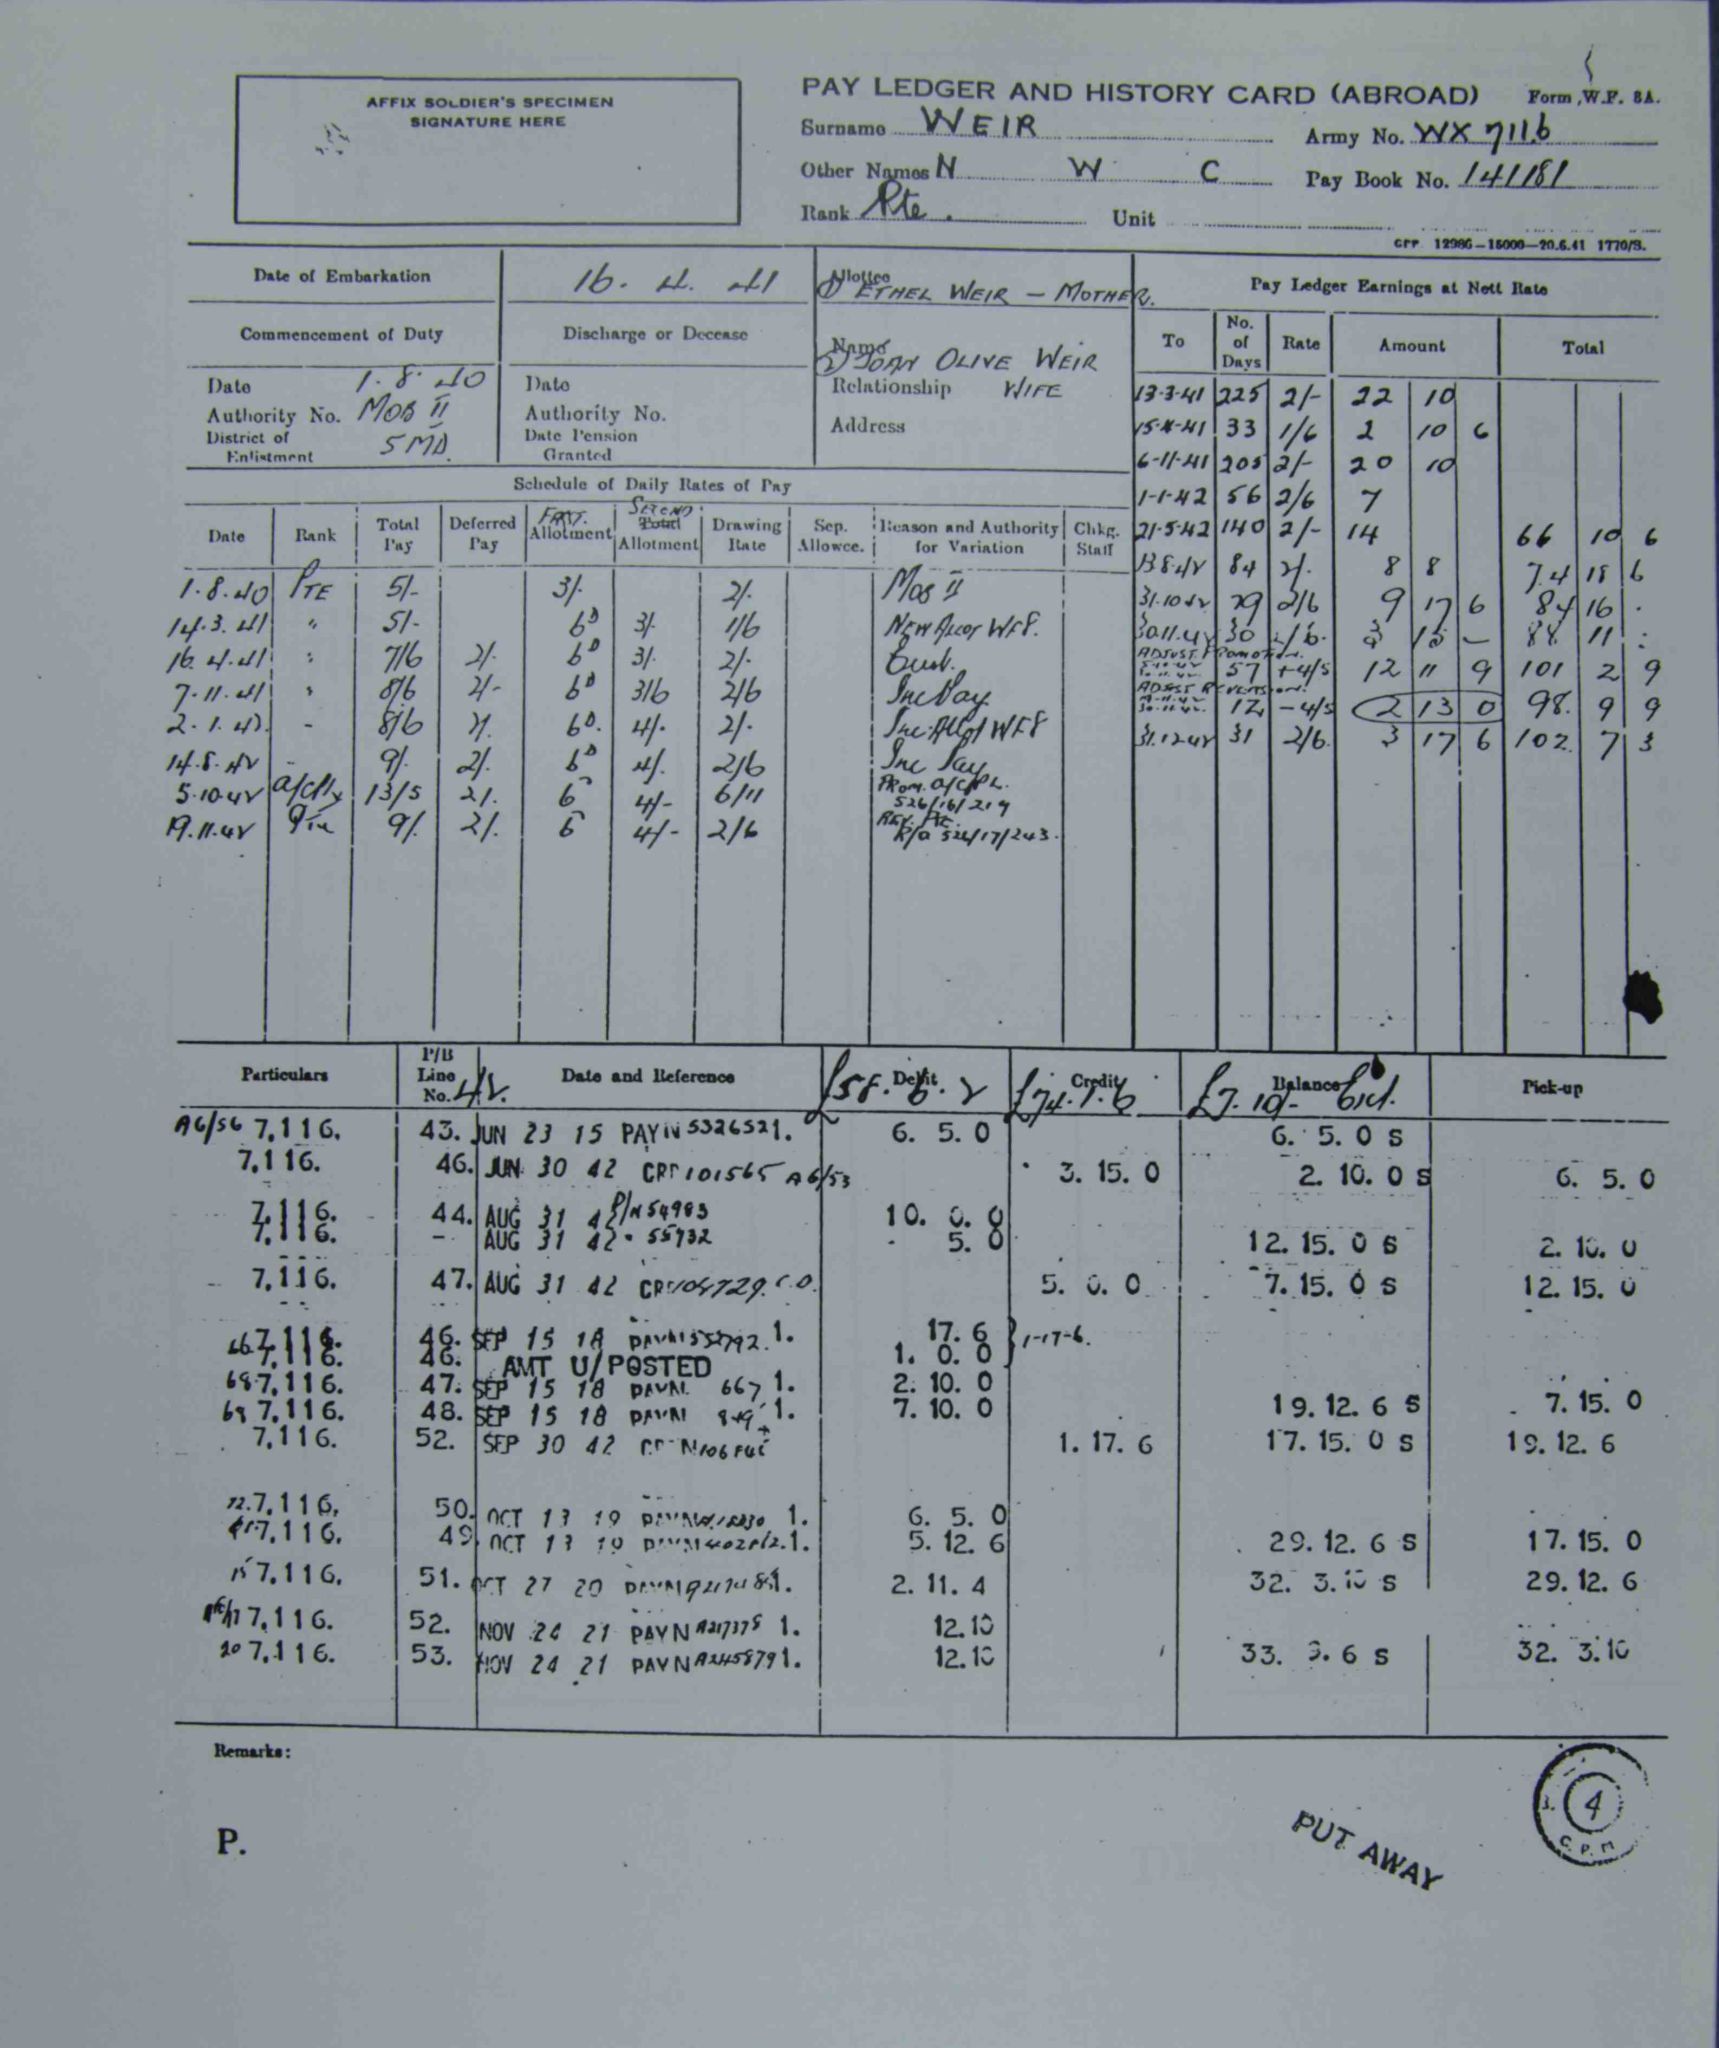 AFFIX SOLDIER'S SPECIMEN
SIGNATURE HERE
PAY LEDGER AND HISTORY CARD (ABROAD) Form W.F. 8A.
Surname WEIR Army No. WX 7116
Other Names N W C Pay Book No. 141181
Rank Pte. Unit
GPP 12986-15000-20.6.41 1770/S.
Date of Embarkation 16. 4. 41
Allottee (1) ETHEL WEIR - MOTHER.
Name (2) JOAN OLIVE WEIR
Relationship WIFE
Address
Commencement of Duty
Date 1.8.40
Authority No. MOB II
District of Enlistment 5 MD.
Discharge or Decease
Date
Authority No.
Date Pension Granted
Pay Ledger Earnings at Nett Rate
To No. of Days Rate Amount Total
13-3-41 225 2/- 22 10
15-4-41 33 1/6 2 10 6
6-11-41 205 2/- 20 10
1-1-42 56 2/6 7
21-5-42 140 2/- 14 66 10 6
13.8.42 84 2/. 8 8 74 18 6
31.10.42 79 2/6 9 17 6 84 16 .
30.11.42 30 2/6. 3 15 - 88 11 :
ADJUST. PROMOTION.
57 +4/5 12 11 9 101 2 9
ADJUST REVERSION.
12 -4/5 2 13 0 98. 9 9
31.12.42 31 2/6. 3 17 6 102. 7 3
Schedule of Daily Rates of Pay
Date Rank Total Pay Deferred Pay FIRST. Allotment SECOND Total Allotment Drawing Rate Sep. Allowce. Reason and Authority for Variation Chkg. Staff
1.8.40 PTE 5/- 3/. 2/. MOB II
14.3.41 " 5/- 6D 3/- 1/6 NEW ALLOT WF8.
16.4.41 " 7/6 2/. 6D 3/. 2/- Emb.
7.11.41 " 8/6 2/- 6D 3/6 2/6 Inc Pay
2.1.42. - 8/6 2/. 6D. 4/. 2/- Inc. Allot WF8
14.8.42 - 9/. 2/. 6D 4/. 2/6 Inc Pay
5.10.42 A/Cpl 13/5 2/. 6 4/- 6/11 PROM. A/CPL. 526/16/219
19.11.42 Pte 9/. 2/. 6 4/- 2/6 REV. Pte. R/O 526/17/243.
Particulars P/B Line No. 42. Date and Reference Debit £58. 6. 2 Credit £74. 7. 6 Balance £7. 10/- Pick-up
A6/56 7.116. 43. JUN 23 15 PAYN 5326521. 6. 5. 0 6. 5. 0 S
7.116. 46. JUN 30 42 CRD 101565 A6/53 3. 15. 0 2. 10. 0 S 6. 5. 0
7.116. 44. AUG 31 42 P/N 54983 10. 0. 0
7.116. - AUG 31 42 " 55732 5. 0 12. 15. 0 S 2. 10. 0
7.116. 47. AUG 31 42 5. 0. 0 7. 15. 0 S 12. 15. 0
7.116. 46. SEP 15 18 PAYN 1. 17. 6 } 1-17-6.
7.116. 46. AMT U/POSTED 1. 0. 0
68 7.116. 47. SEP 15 18 PAYN 667 1. 2. 10. 0
68 7.116. 48. SEP 15 18 PAYN 1. 7. 10. 0 19. 12. 6 S 7. 15. 0
7.116. 52. SEP 30 42 1. 17. 6 17. 15. 0 S 19. 12. 6
72. 7.116. 50. OCT 13 19 PAYN 1. 6. 5. 0
7.116. 49. OCT 13 19 PAYN 1. 5. 12. 6 29. 12. 6 S 17. 15. 0
7.116. 51. OCT 27 20 PAYN 1. 2. 11. 4 32. 3. 10 S 29. 12. 6
7.116. 52. NOV 24 21 PAYN A217375 1. 12. 10
20 7.116. 53. NOV 24 21 PAYN A245879 1. 12. 10 33. 9. 6 S 32. 3. 10
Remarks:
P.
PUT AWAY
4